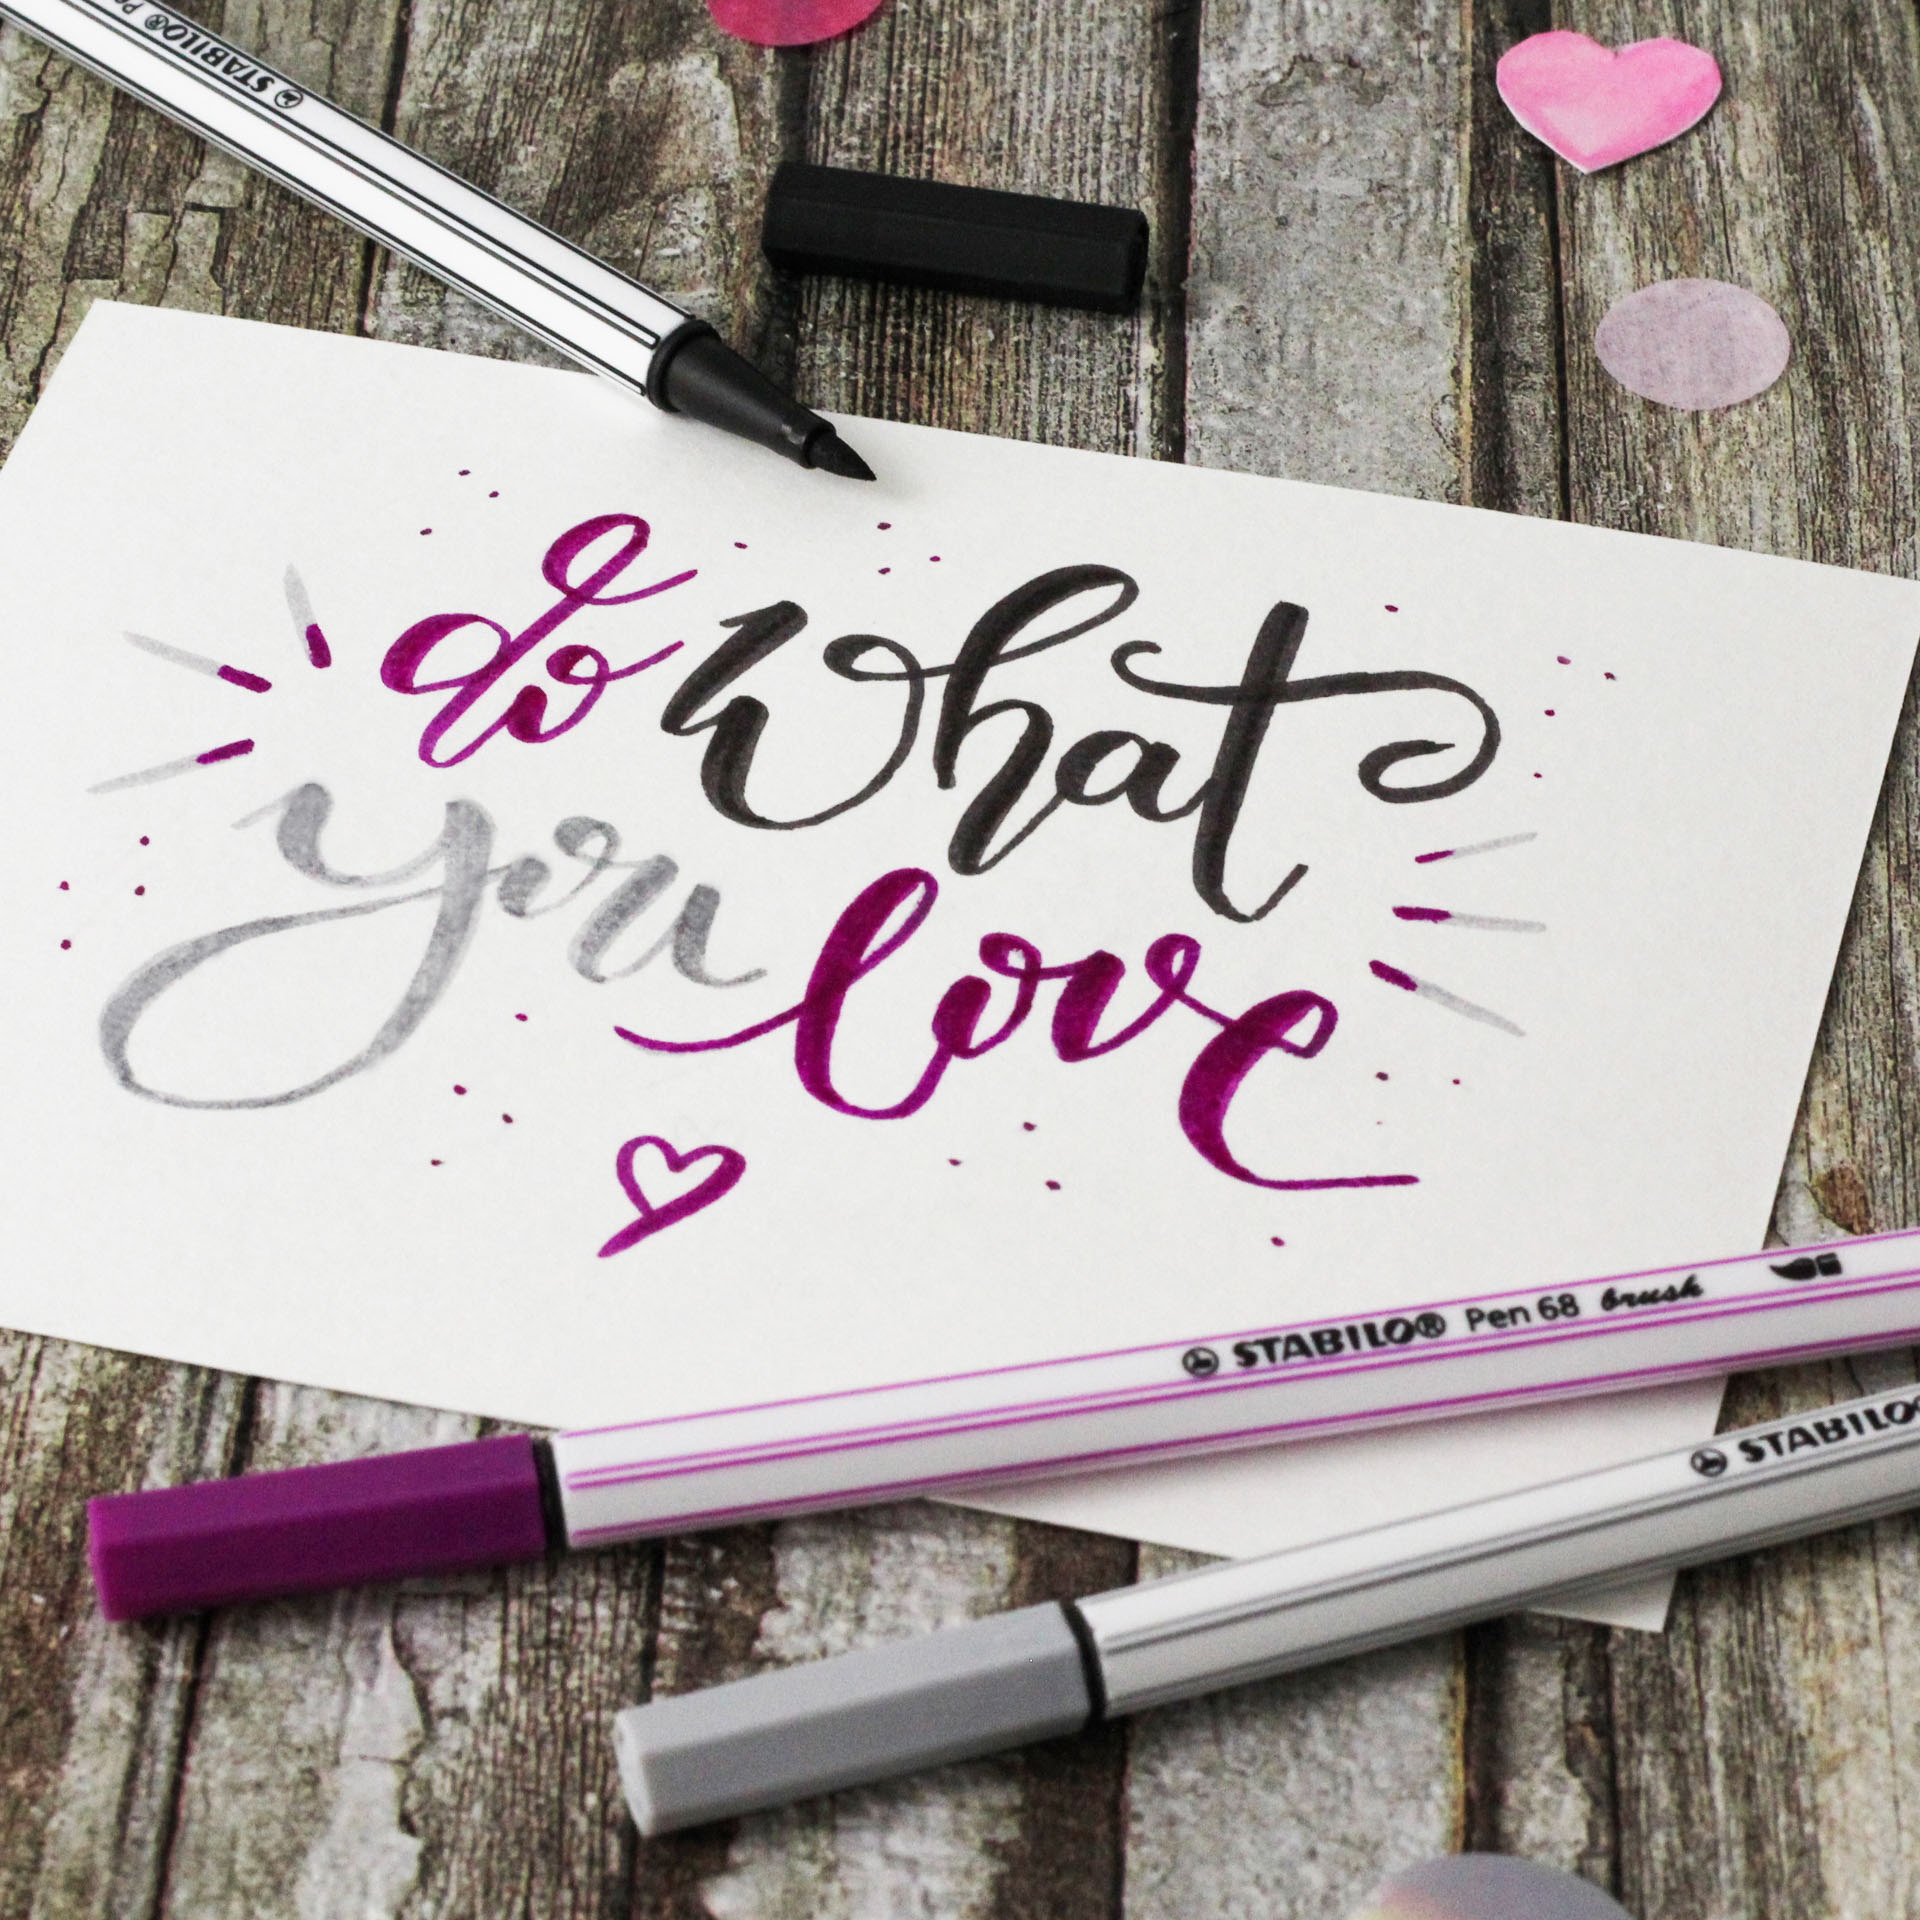 STABILO® Pe
do what
you love
STABILO® Pen 68 brush
STABILO